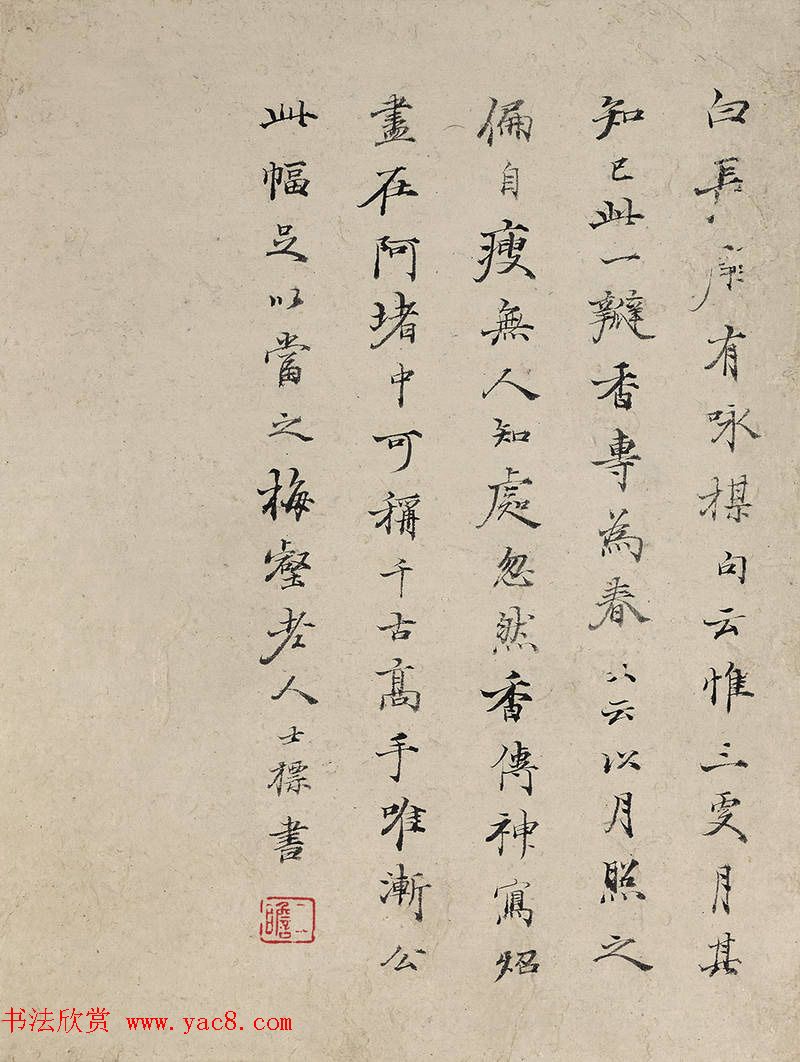 白長康有咏楳句云惟三更月其
知己此一瓣香專為春又云以月照之
偏自瘦無人知處忽然香傳神寫炤
盡在阿堵中可稱千古高手唯漸公
此幅足以當之梅壑老人士標書
二瞻
书法欣赏 www.yac8.com